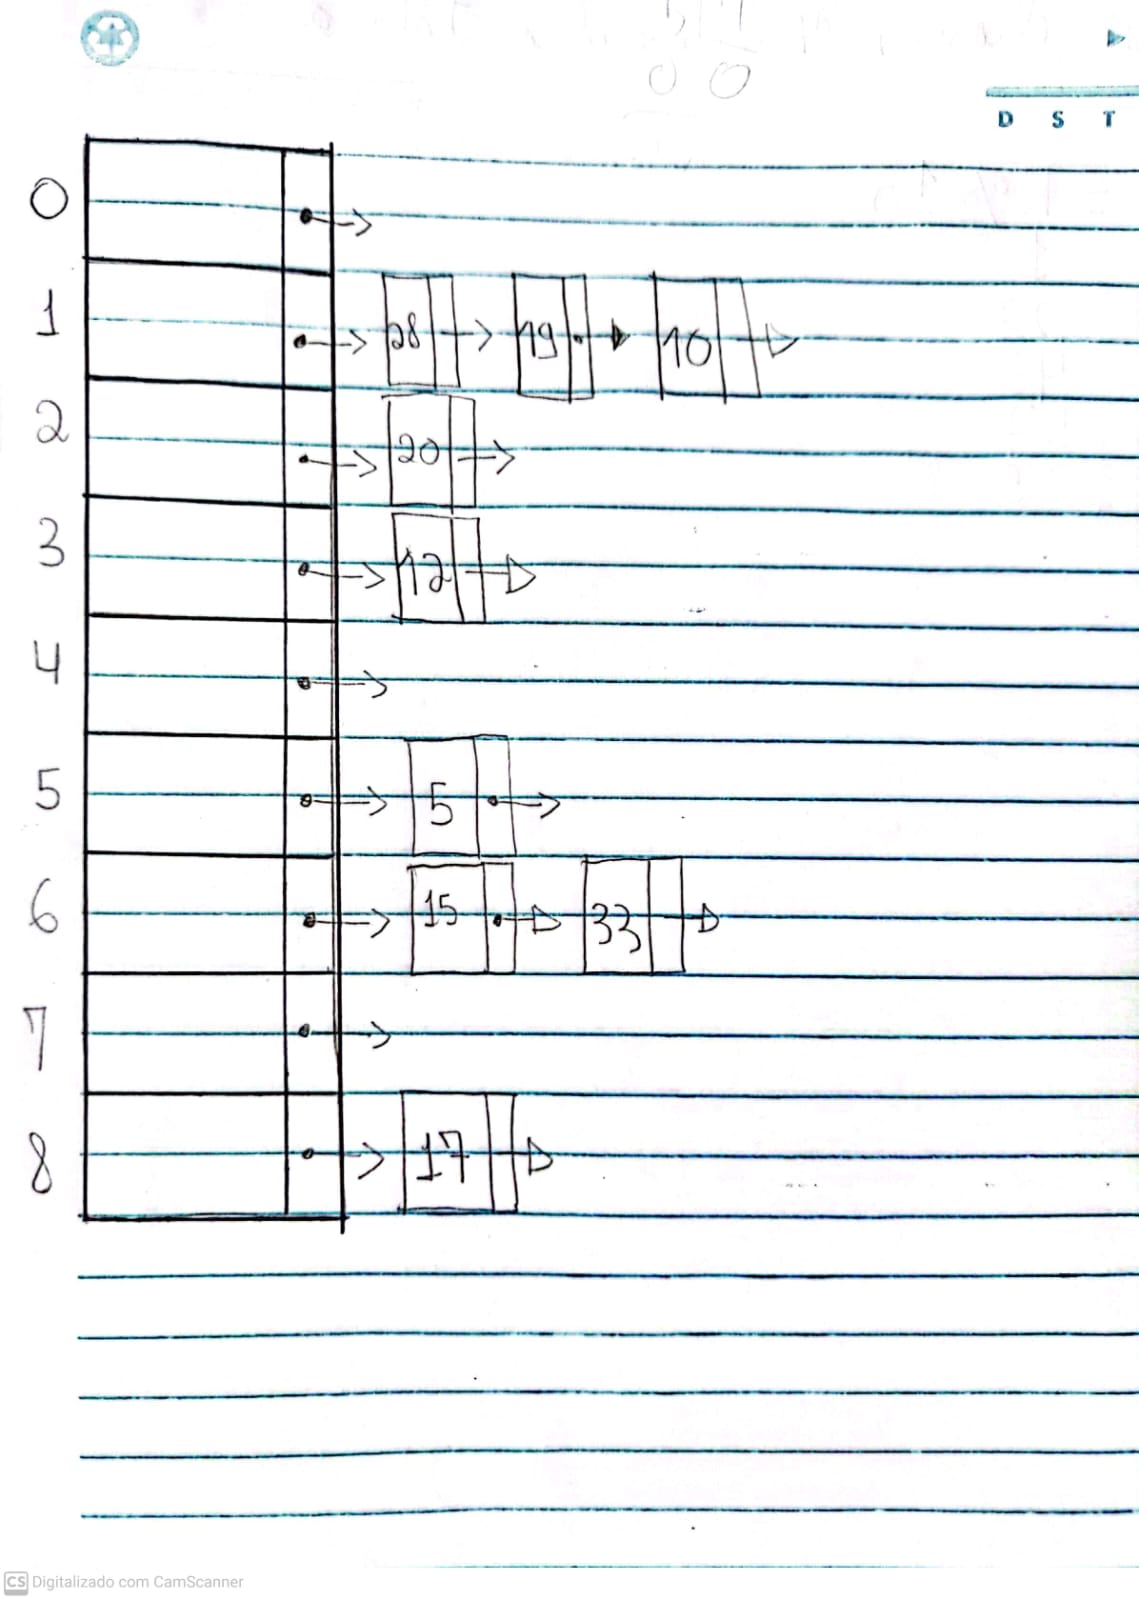 D S T
0
1 28 19 10
2 20
3 12
4
5 5
6 15 33
7
8 17
CS Digitalizado com CamScanner